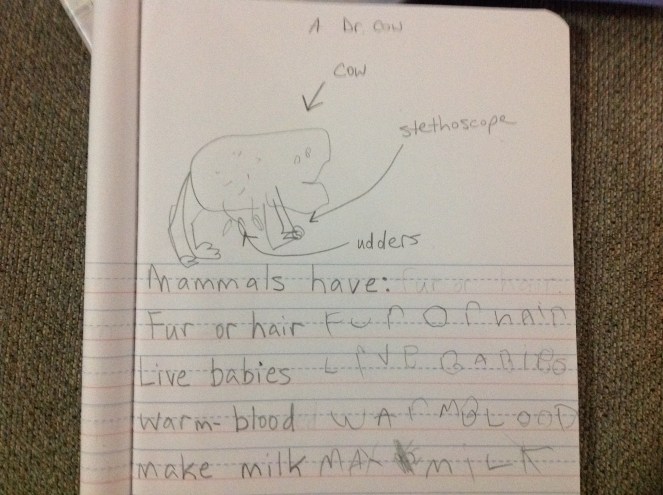 A Dr. Cow
Cow
stethoscope
udders
Mammals have: Fur or hair
Fur or hair FUr Or hAir
Live babies LIVE BABIES
Warm-blood WArM BLOOD
make milk MAK MILK